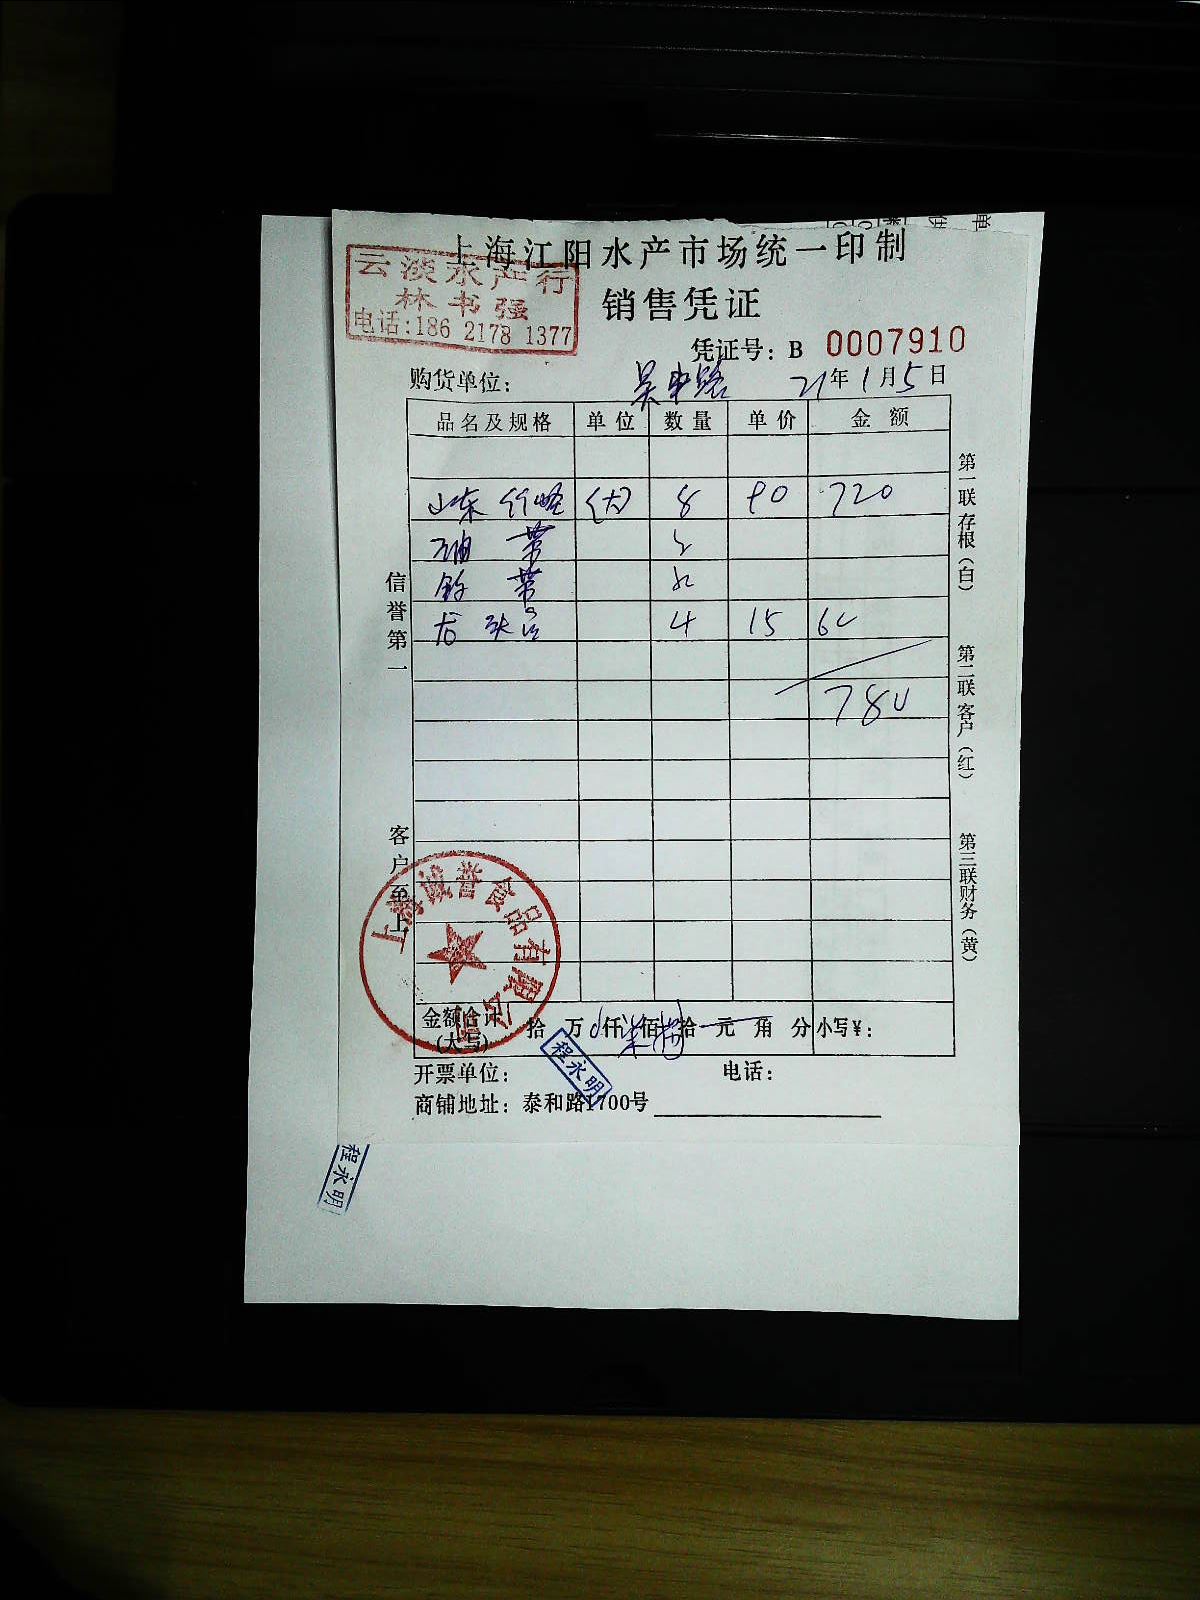 上海江阳水产市场统一印制
云淡水产行
林书强
电话:186 2178 1377
销售凭证
凭证号: B 0007910
购货单位: 吴中路 21年1月5日
品名及规格 单位 数量 单价 金额
山东 (大) 8 90 720
带
带
龙头 4 15 60
780
信誉第一
客户至上
第一联存根(白)
第二联客户(红)
第三联财务(黄)
上海诚誉食品有限公司
金额合计(大写) 拾 万 仟 佰 拾 元 角 分 小写¥:
程永明
开票单位: 电话:
商铺地址: 泰和路1700号
程永明